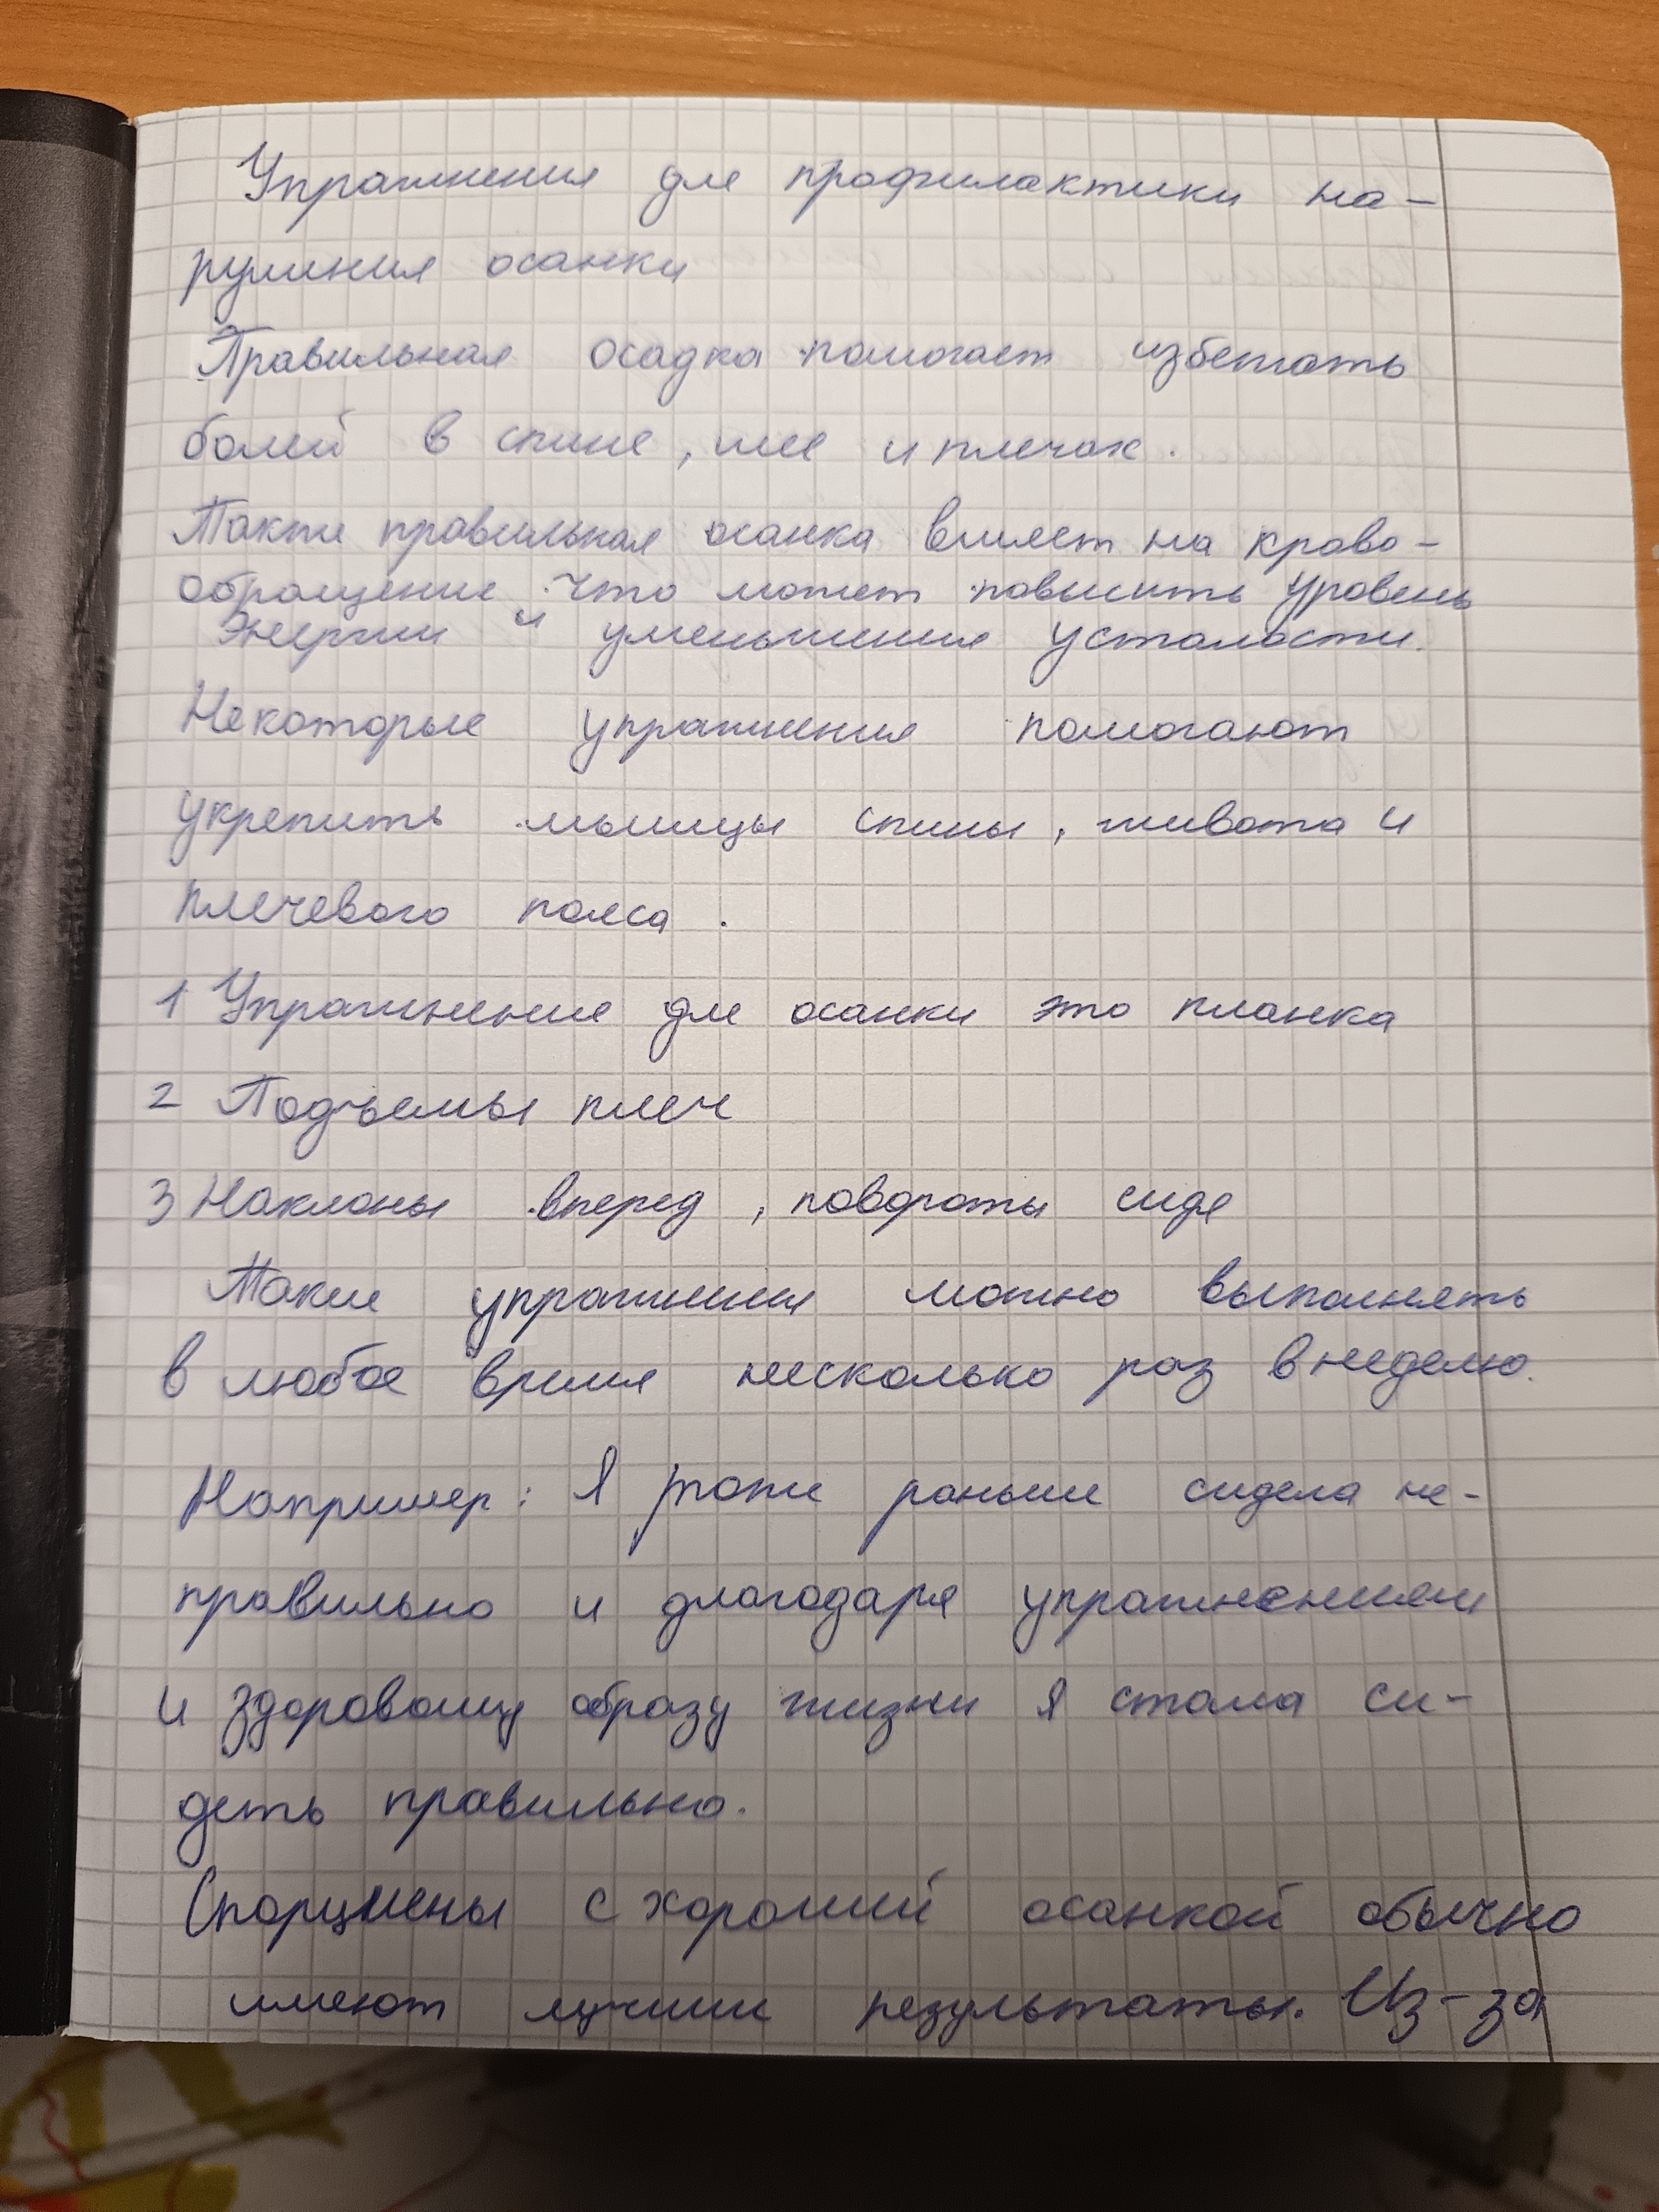 Упражнения для профилактики на-
рушения осанки
Правильная осадка помогает избегать
болей в спине, шее и плечах.
Также правильная осанка влияет на крово-
обращение, что может повысить уровень
энергии и уменьшения усталости.
Некоторые упражнения помогают
укрепить мышцы спины, живота и
плечевого пояса.
1 Упражнение для осанки это планка
2 Подъемы плеч
3 Наклоны вперед, повороты сидя
Такие упражнения можно выполнять
в любое время несколько раз в неделю.
Например: Я тоже раньше сидела не-
правильно и благодаря упражнениям
и здоровому образу жизни я стала си-
деть правильно.
Спорцмены с хорошей осанкой обычно
имеют лучшие результаты. Из-за